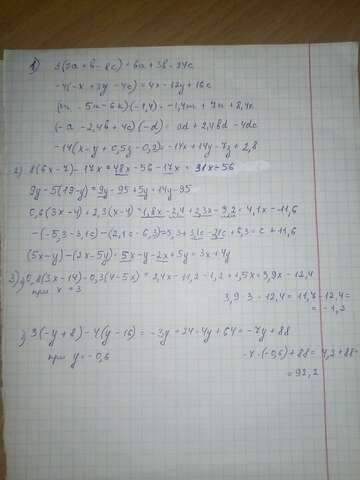 1) 3(2a + b - 8c) = 6a + 3b - 24c
-4(-x + 3y - 4c) = 4x - 12y + 16c
(m - 5n - 6k)(-1,4) = -1,4m + 7n + 8,4k
(-a - 2,4b + 4c)(-d) = ad + 2,4bd - 4dc
-14(x - y + 0,5z - 0,2) = -14x + 14y - 7z + 2,8
2) 8(6x - 7) - 17x = 48x - 56 - 17x = 31x - 56
9y - 5(19 - y) = 9y - 95 + 5y = 14y - 95
0,6(3x - 4) + 2,3(x - 4) = 1,8x - 2,4 + 2,3x - 9,2 = 4,1x - 11,6
-(-5,3 - 3,1c) - (2,1c - 6,3) = 5,3 + 3,1c - 2,1c + 6,3 = c + 11,6
(5x - y) - (2x - 5y) = 5x - y - 2x + 5y = 3x + 4y
3) 0,8(3x - 14) - 0,3(4 - 5x) = 2,4x - 11,2 - 1,2 + 1,5x = 3,9x - 12,4
при x = 3
3,9 · 3 - 12,4 = 11,7 - 12,4 =
= -1,3
3(-y + 8) - 4(y - 16) = -3y + 24 - 4y + 64 = -7y + 88
при y = -0,6
-7 · (-0,6) + 88 = 4,2 + 88 =
= 92,2